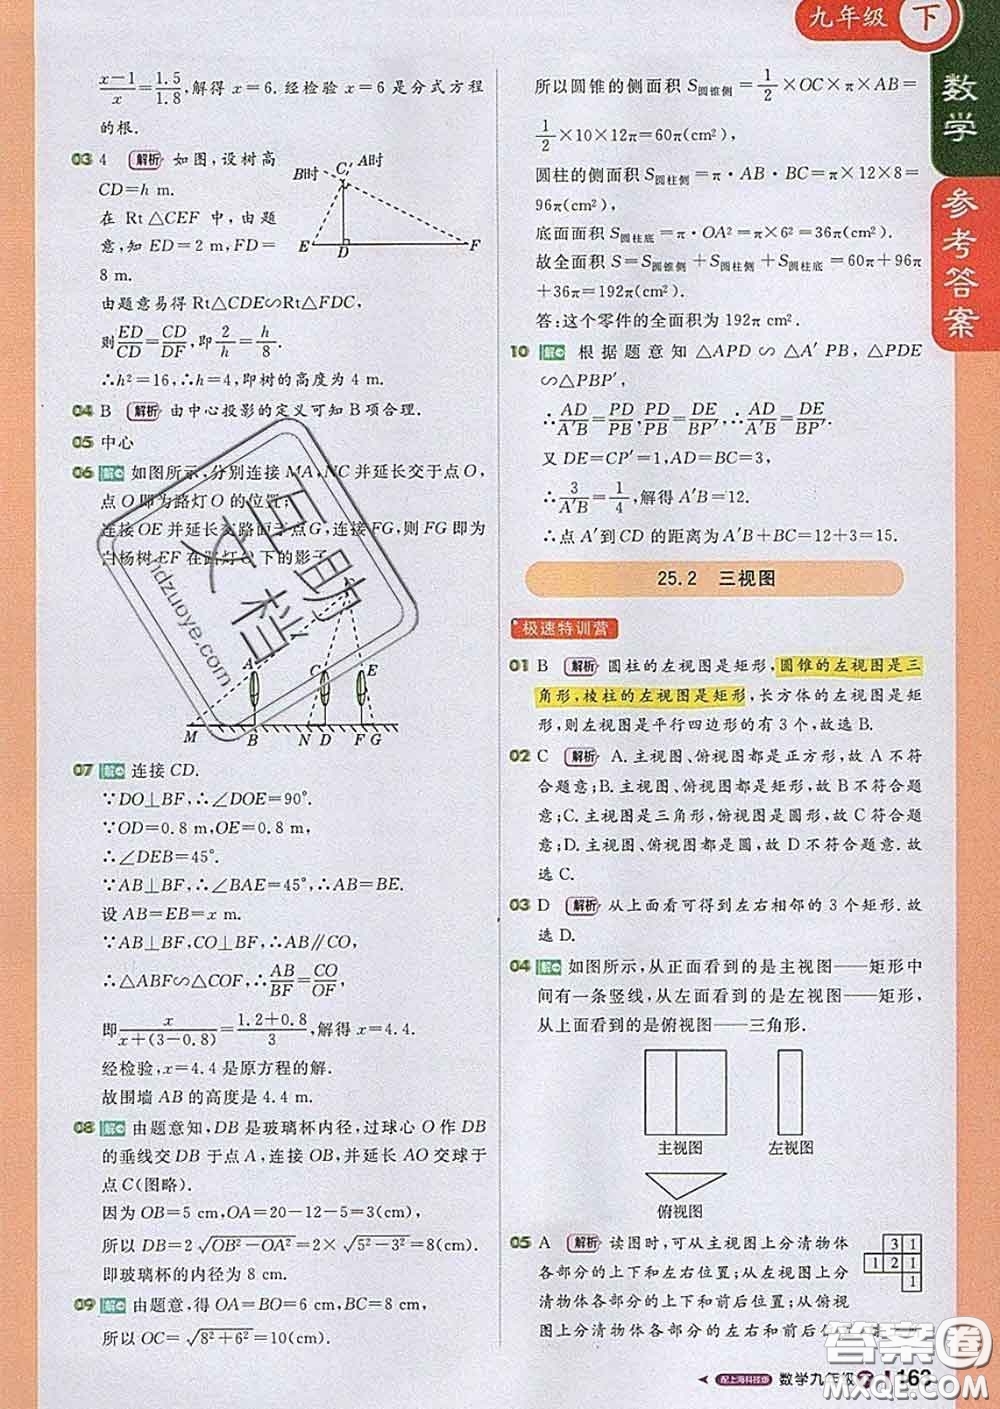 九年级 下
数学
参考答案
x−1/x=1.5/1.8,解得 x=6.经检验 x=6 是分式方程
的根.
03 4 解析 如图,设树高
CD=h m.
在 Rt△CEF 中,由题
意,知 ED=2 m,FD=
8 m.
B时 C′ A时
E D F
由题意易得 Rt△CDE∽Rt△FDC,
则ED/CD=CD/DF,即2/h=h/8.
∴h²=16,∴h=4,即树的高度为 4 m.
04 B 解析 由中心投影的定义可知 B 项合理.
05 中心
06 解 如图所示,分别连接 MA,NC 并延长交于点 O,
点 O 即为路灯 O 的位置;
连接 OE 并延长交路面于点 G,连接 FG,则 FG 即为
白杨树 EF 在路灯 O 下的影子.
A C E
M B N D F G
07 解 连接 CD.
∵DO⊥BF,∴∠DOE=90°.
∵OD=0.8 m,OE=0.8 m,
∴∠DEB=45°.
∵AB⊥BF,∴∠BAE=45°,∴AB=BE.
设 AB=EB=x m.
∵AB⊥BF,CO⊥BF,∴AB∥CO,
∴△ABF∽△COF,∴AB/BF=CO/OF,
即x/x+(3−0.8)=1.2+0.8/3,解得 x=4.4.
经检验,x=4.4 是原方程的解.
故围墙 AB 的高度是 4.4 m.
08 解 由题意知,DB 是玻璃杯内径,过球心 O 作 DB
的垂线交 DB 于点 A,连接 OB,并延长 AO 交球于
点 C(图略).
因为 OB=5 cm,OA=20−12−5=3(cm),
所以 DB=2√OB²−OA²=2×√5²−3²=8(cm).
即玻璃杯的内径为 8 cm.
09 解 由题意,得 OA=BO=6 cm,BC=8 cm,
所以 OC=√8²+6²=10(cm),
所以圆锥的侧面积 S圆锥侧=1/2×OC×π×AB=
1/2×10×12π=60π(cm²),
圆柱的侧面积 S圆柱侧=π·AB·BC=π×12×8=
96π(cm²),
底面面积 S圆柱底=π·OA²=π×6²=36π(cm²).
故全面积 S=S圆锥侧+S圆柱侧+S圆柱底=60π+96π
+36π=192π(cm²).
答:这个零件的全面积为 192π cm².
10 解 根据题意知 △APD∽△A′PB,△PDE
∽△PBP′,
∴AD/A′B=PD/PB,PD/PB=DE/BP′,∴AD/A′B=DE/BP′.
又 DE=CP′=1,AD=BC=3,
∴3/A′B=1/4,解得 A′B=12.
∴点 A′到 CD 的距离为 A′B+BC=12+3=15.
25.2 三视图
极速特训营
01 B 解析 圆柱的左视图是矩形,圆锥的左视图是三
角形,棱柱的左视图是矩形,长方体的左视图是矩
形,则左视图是平行四边形的有 3 个,故选 B.
02 C 解析 A.主视图、俯视图都是正方形,故 A 不符
合题意;B.主视图、俯视图都是矩形,故 B 不符合题
意;C.主视图是三角形,俯视图是圆形,故 C 符合题
意;D.主视图、俯视图都是圆,故 D 不符合题意.
故选 C.
03 D 解析 从上面看可得到左右相邻的 3 个矩形.故
选 D.
04 解 如图所示,从正面看到的是主视图——矩形中
间有一条竖线,从左面看到的是左视图——矩形,
从上面看到的是俯视图——三角形.
主视图 左视图
俯视图
05 A 解析 读图时,可从主视图上分清物体
各部分的上下和左右位置;从左视图上分
清物体各部分的上下和前后位置;从俯视
图上分清物体各部分的左右和前后位
3 1
1 2 1
1
配上海科技版 数学九年级 下 163
自助文档
答案圈
MXQE.COM